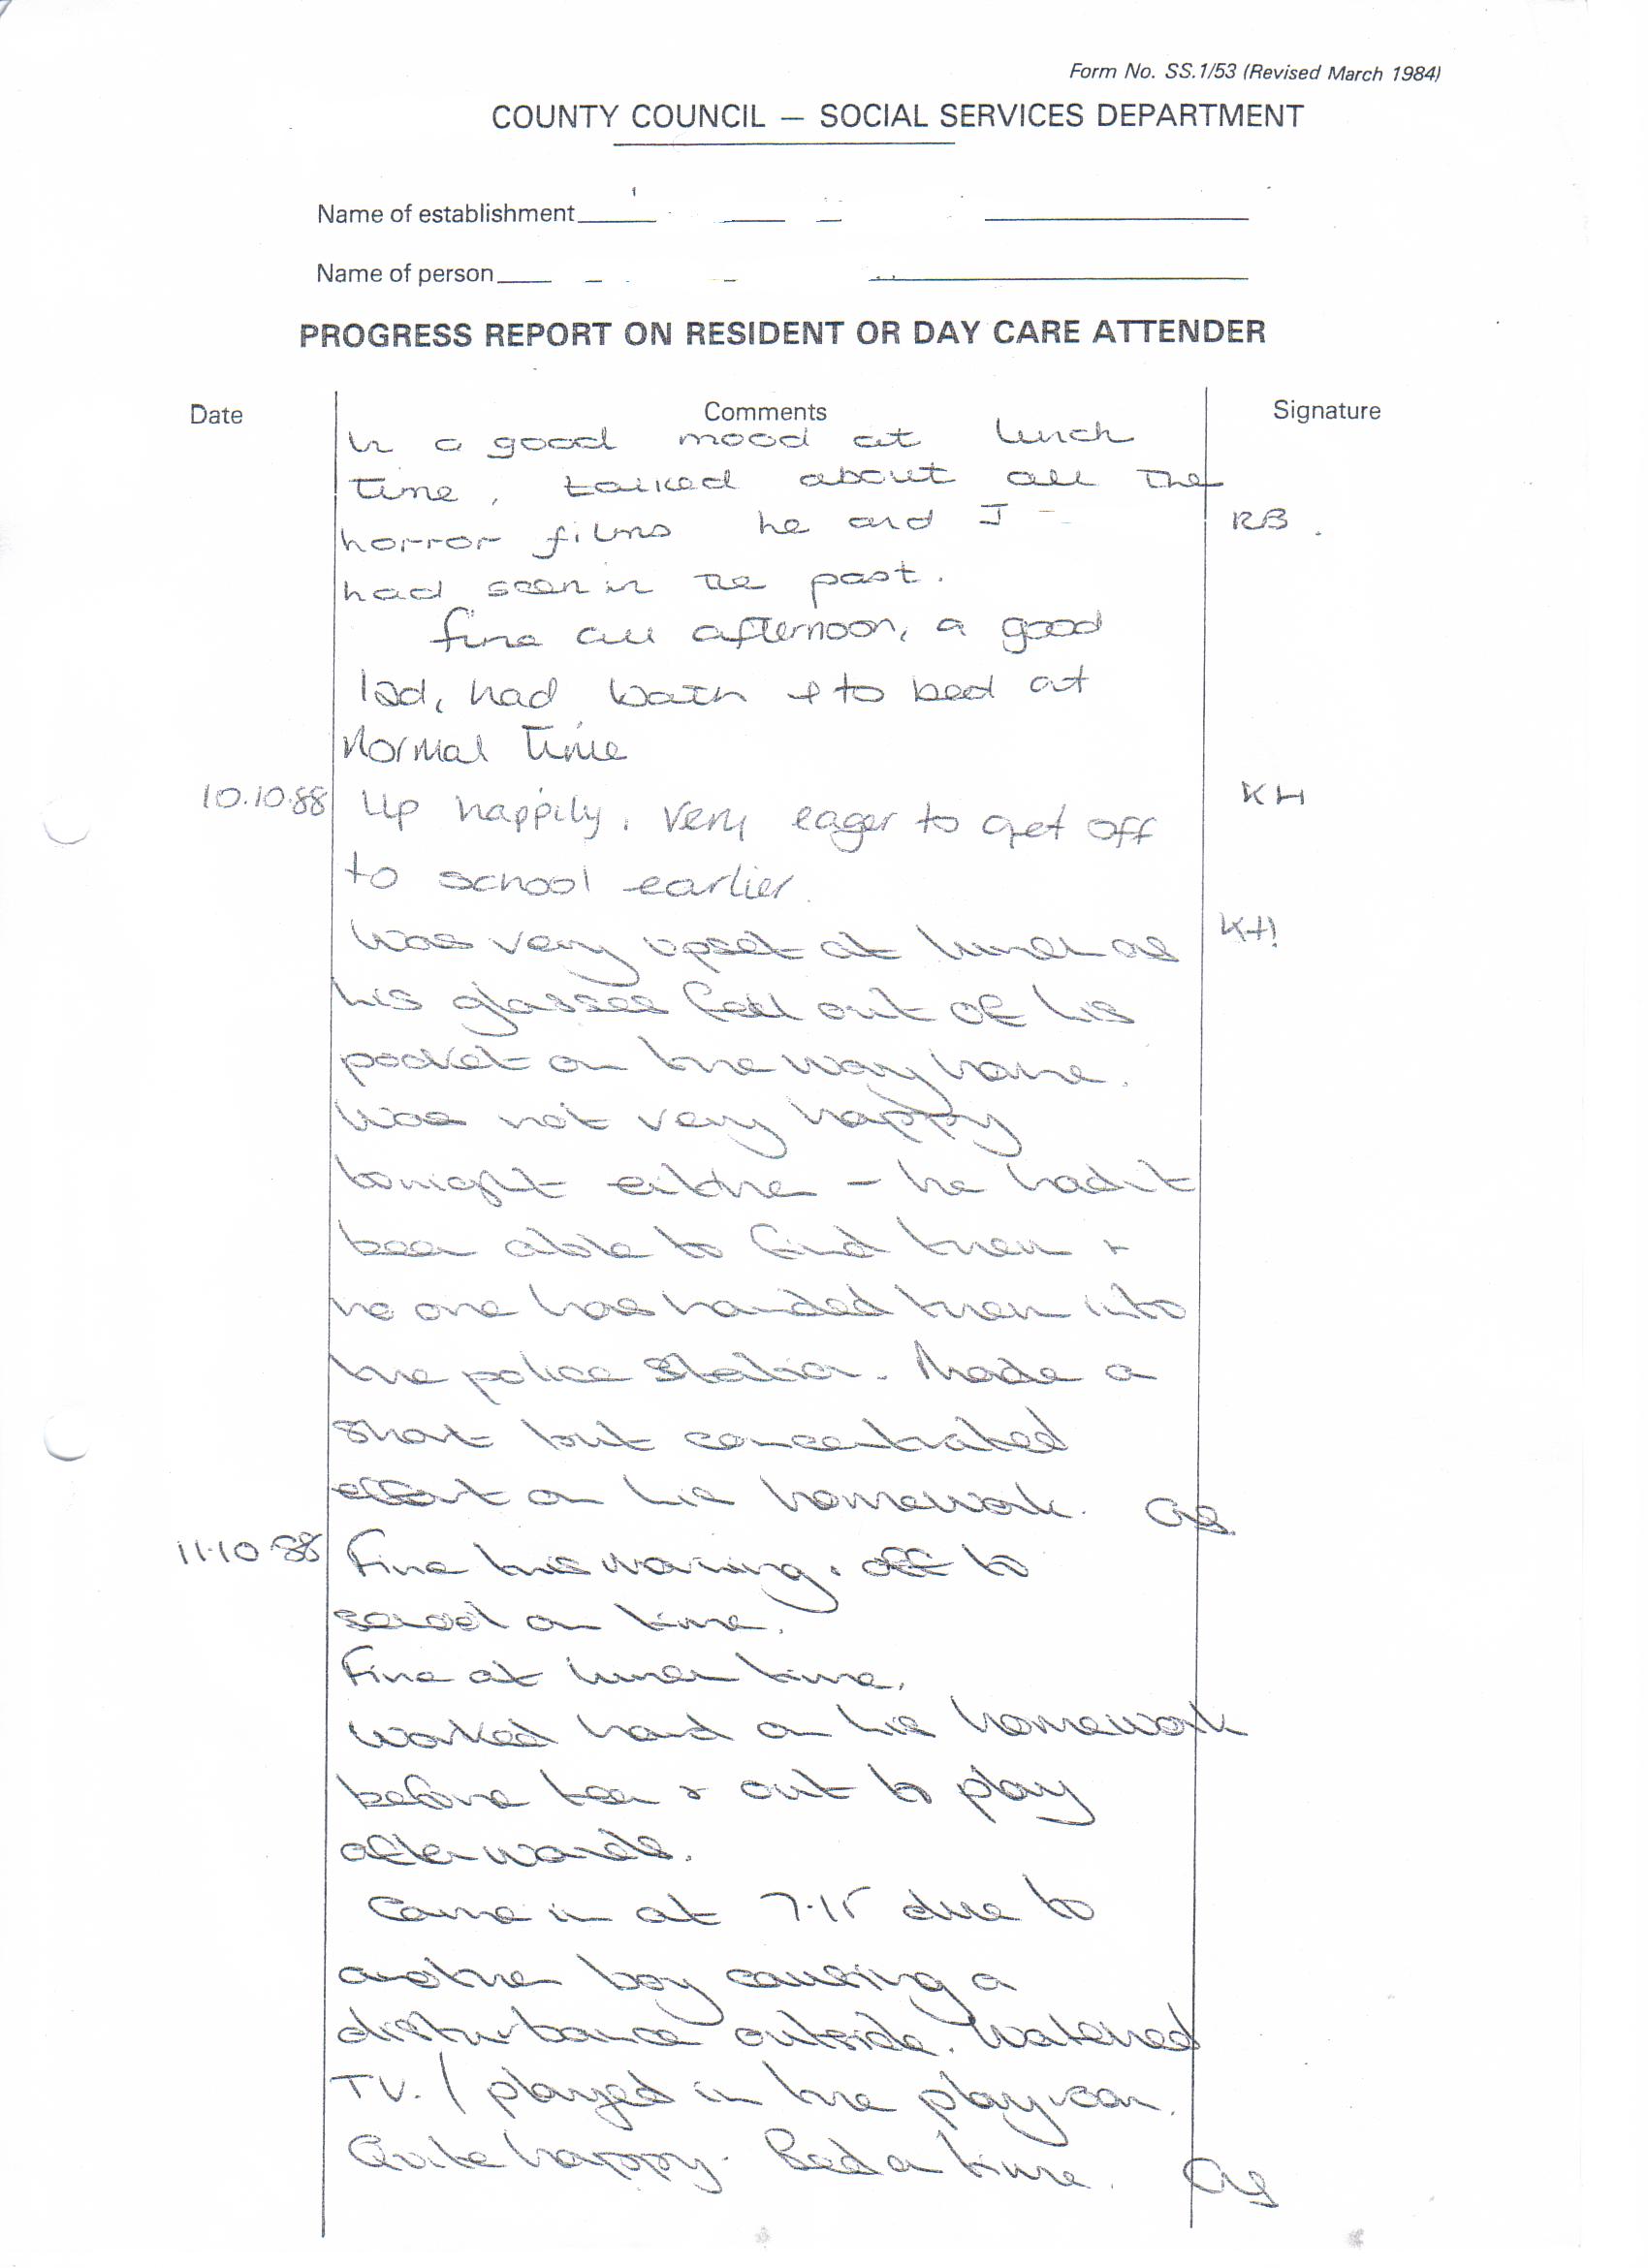 Form No. SS.1/53 (Revised March 1984)
COUNTY COUNCIL — SOCIAL SERVICES DEPARTMENT
Name of establishment
Name of person
PROGRESS REPORT ON RESIDENT OR DAY CARE ATTENDER
Date Comments Signature
In a good mood at lunch
time, talked about all the
horror films he and I RB.
had seen in the past.
fine all afternoon, a good
lad, had bath + to bed at
Normal time
10.10.88 Up happily, very eager to get off KH
to school earlier.
Was very upset at lunch as KH
his glasses fell out of his
pocket on the way home.
Was not very happy
tonight either - he hadn't
been able to find them +
no one has handed them into
the police station. Made a
short but concentrated
effort on his homework.
11.10.88 Fine this morning, off to
school on time.
Fine at lunch time.
Worked hard on his homework
before tea + out to play
afterwards.
Came in at 7.15 due to
another boy causing a
disturbance outside. Watched
T.V. / played in the playroom.
Quite happy. Bed on time.